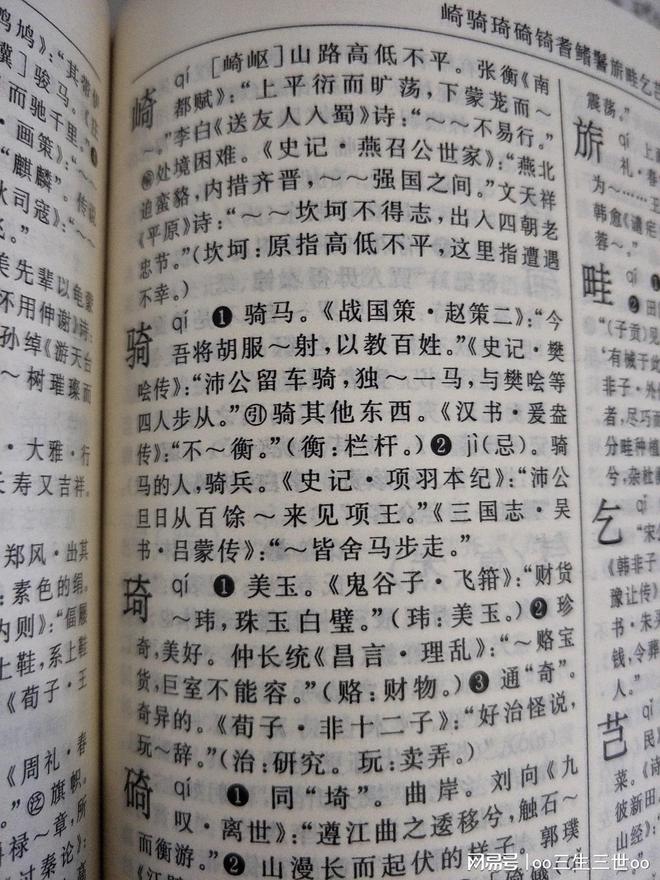 崎骑琦碕锜耆鳍鬐旂畦乞芑
鸣鸠》：“其带
骏马。《庄
而驰千里。”
画策》：“～～
“麒麟”。传说
火司寇》：“～～
美先辈以龟蒙
不用伸谢》诗：
孙绰《游天台
～树璀璨而
·大雅·行
天寿又吉祥。
郑风·出其
：素色的绢。
内则》：“偪屦
上鞋，系上鞋
《荀子·王
《周礼·春
旗帜。
禄～章，所
过秦论》：
崎 qí ［崎岖］山路高低不平。张衡《南
都赋》：“上平衍而旷荡，下蒙茏而～
～。”李白《送友人入蜀》诗：“～～不易行。”
喻处境困难。《史记·燕召公世家》：“燕北
迫蛮貉，内措齐晋，～～强国之间。”文天祥
《平原》诗：“～～坎坷不得志，出入四朝老
忠节。”（坎坷：原指高低不平，这里指遭遇
不幸。）
骑 qí ❶ 骑马。《战国策·赵策二》：“今
吾将胡服～射，以教百姓。”《史记·樊
哙传》：“沛公留车骑，独～一马，与樊哙等
四人步从。”引骑其他东西。《汉书·爰盎
传》：“不～衡。”（衡：栏杆。）❷ jì（忌）。骑
马的人，骑兵。《史记·项羽本纪》：“沛公
旦日从百馀～来见项王。”《三国志·吴
书·吕蒙传》：“～皆舍马步走。”
琦 qí ❶ 美玉。《鬼谷子·飞箝》：“财货
～玮，珠玉白璧。”（玮：美玉。）❷ 珍
奇，美好。仲长统《昌言·理乱》：“～赂宝
货，巨室不能容。”（赂：财物。）❸ 通“奇”。
奇异的。《荀子·非十二子》：“好治怪说，
玩～辞。”（治：研究。玩：卖弄。）
碕 qí ❶ 同“埼”。曲岸。刘向《九
叹·离世》：“遵江曲之逶移兮，触石～
而衡游。”❷ 山漫长而起伏的样子。郭璞
震荡。”
旂 qí 上
礼·春
为……王
韩愈《谴疟
蓉～。”
畦 qí ❶
❷ 田
“（子贡）见
‘有械于此
非子·外
者，尽巧而
分畦种植
兮，杂杜
乞 qǐ
“宋
《韩非子
豫让传》
书·朱
钱，令葬
人。”
芑 qǐ
民
菜。《诗
彼新田
山经》：“
网易号|oo三生三世oo